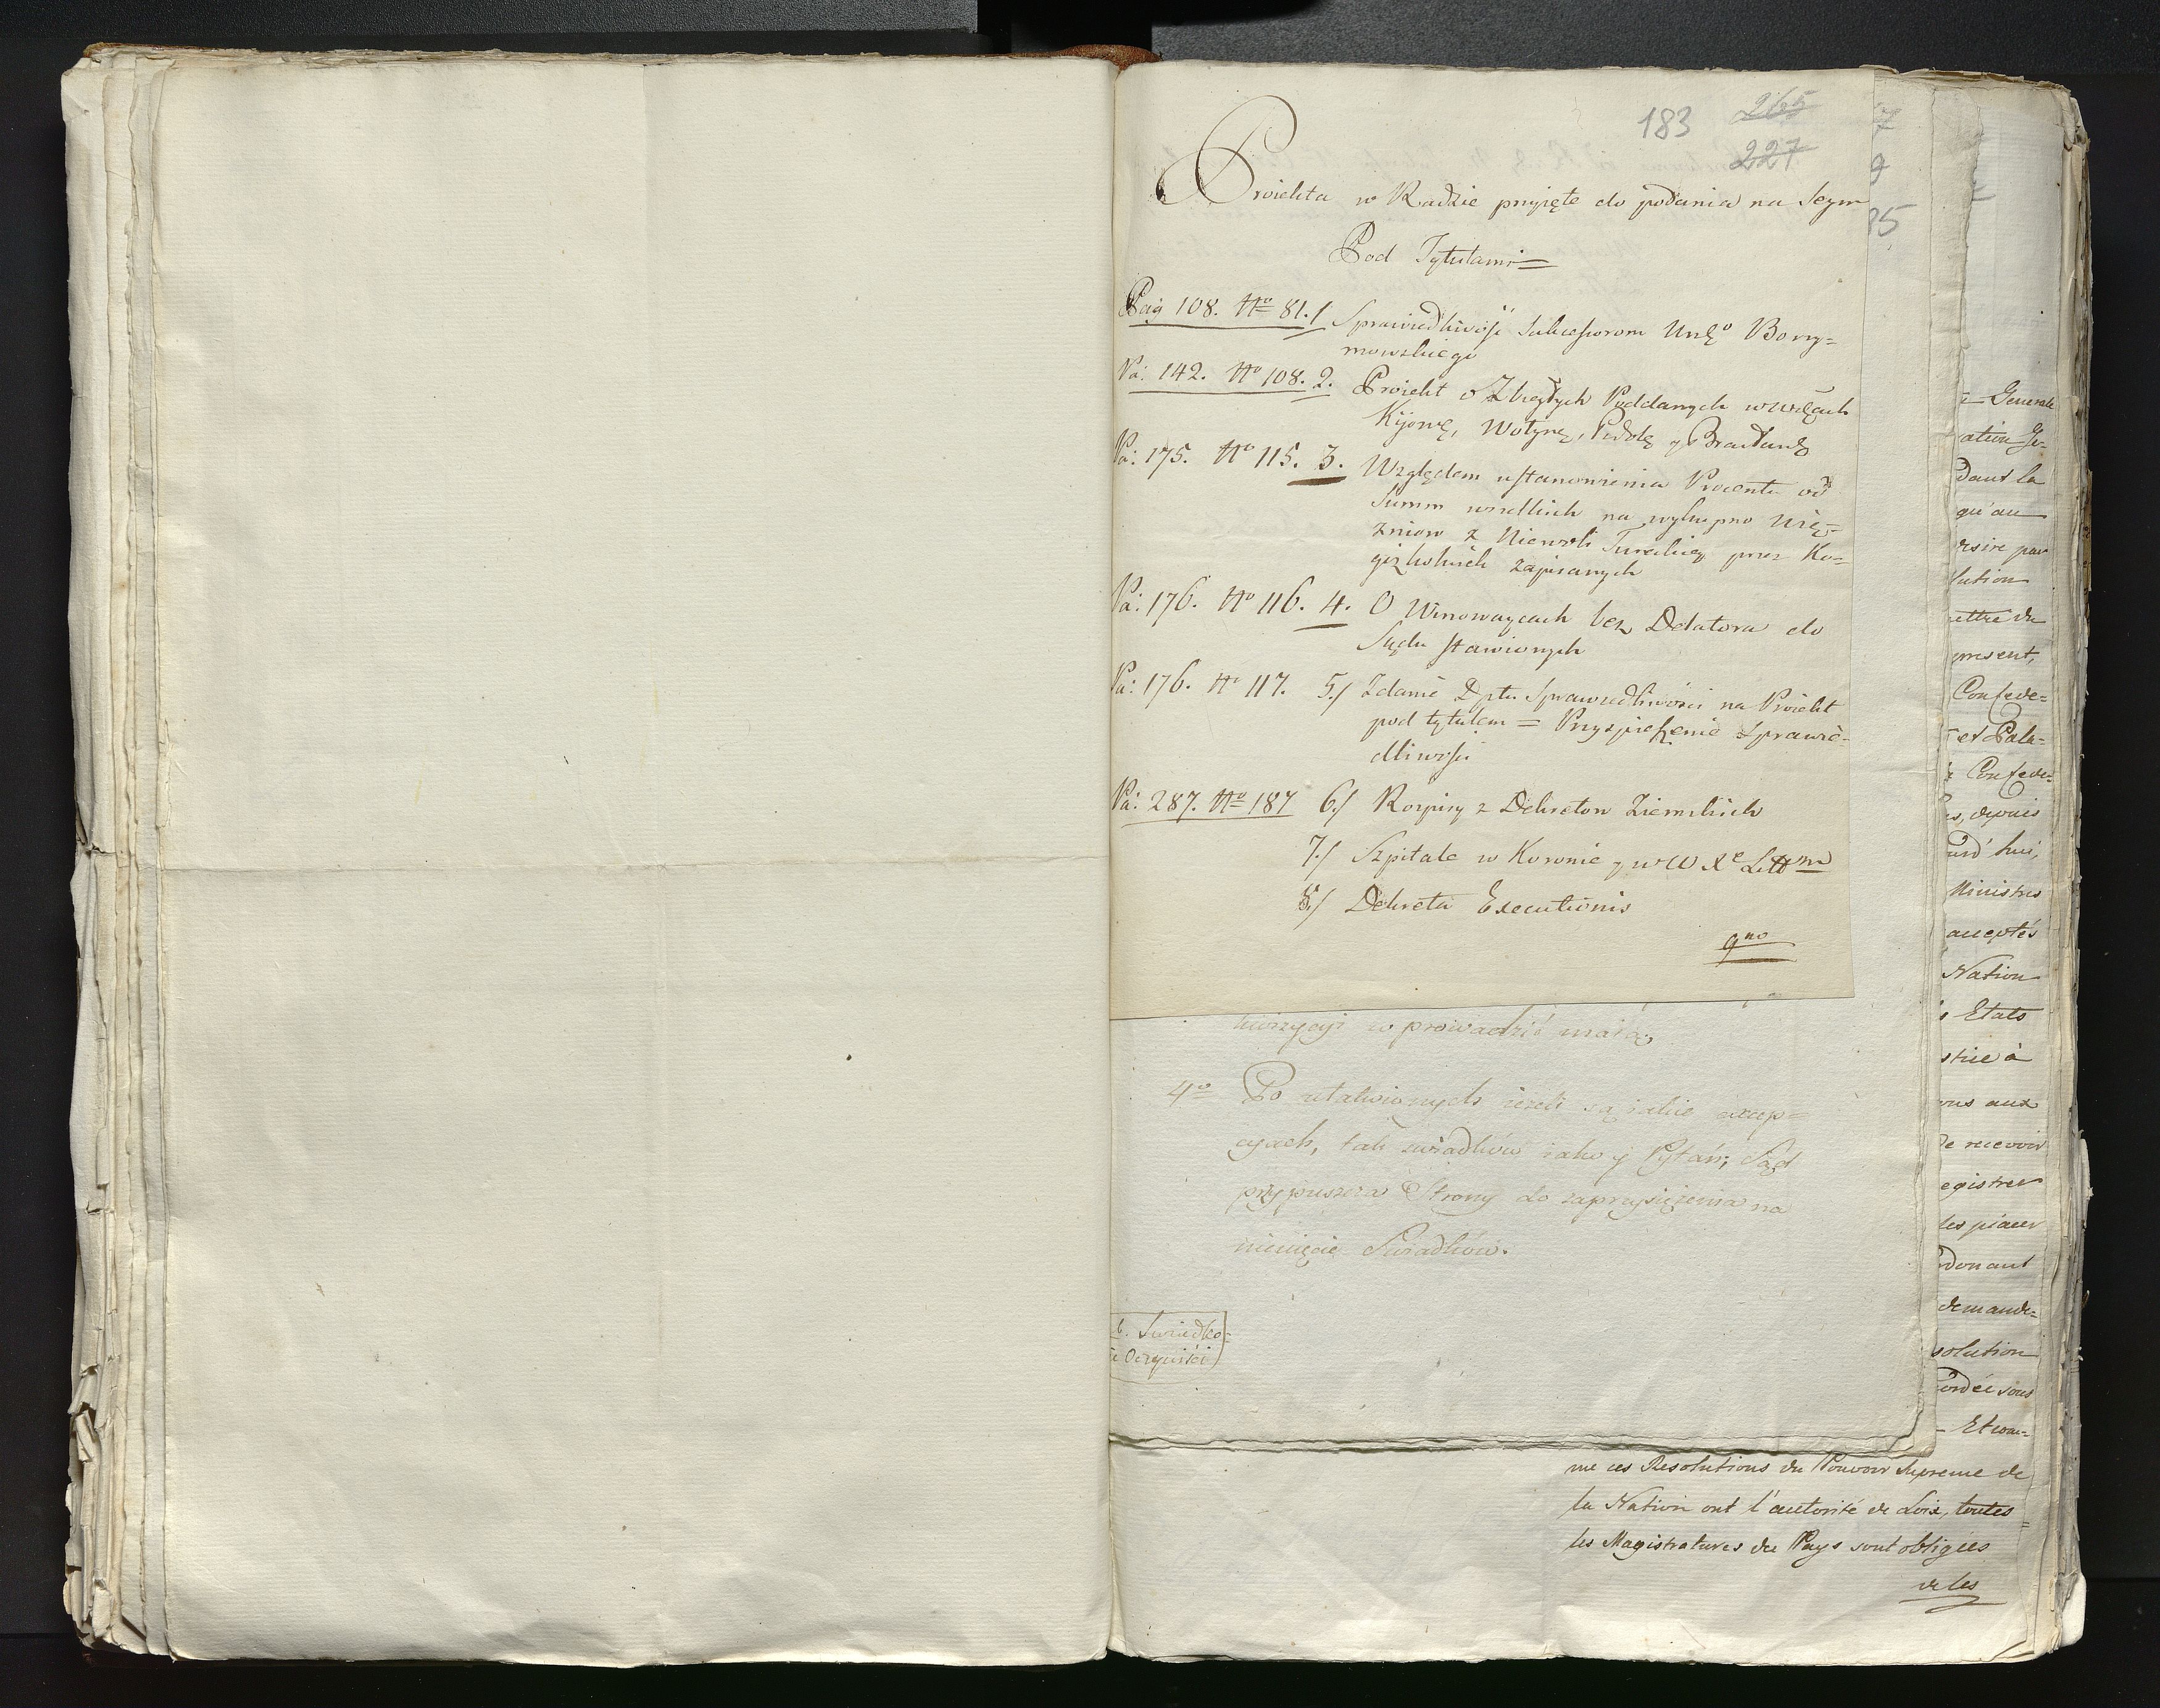 183 265
227
Proiekta w Radzie przyięte do podania na Seym
Pod Tytułami =
Pag 108. No 81. 1 Sprawiedliwość Sukcessorom Urgo Bory=
mowskiego
Pa: 142. No 108. 2. Proiekt o Zbiegłych Poddanych w Wdztwach
Kijow, Wołyn, Podol y Bracław
Pa: 175. No 115. 3. Względem ustanowienia Procentu od
Summ wszelkich na wykupno Wię=
zniow z Niewoli Tureckiey przez Ko=
gożkolwiek zapisanych
Pa: 176. No 116. 4. O Winowaycach bez Delatora do
Sądu stawionych
Pa: 176. No 117. 5./ Zdanie Dptu Sprawiedliwości na Proiekt
pod tytułem = Przyspieszenie Sprawie=
dliwości
Pa: 287. No 187 6./ Rozpisy z Dekretow Ziemskich
7./ Szpitale w Koronie y w W Xe Litt
8./ Dekreta Executionis
9no
w prowadzić maią,
4o Po ułatwionych ieżeli są iakie excep=
cyach, tak świadków iako y Pytań, Sąd
przypuszcza Strony do zaprzysiężenia na
Swiadków.
Swiadko=
Oczywiści
7
9
35
Generale
ation Ge=
dant la
qu'au
par
lution
ettre du
present,
Confede=
et Pala=
Confede=
depuis
urd'hui,
Ministres
acceptés
Nation
Etats
stice à
ons aux
de recevoir
egistrer
les placer
donant
demande=
solution
cordée sous
Et com=
me ces Resolutions du Pouvoir Supreme de
la Nation ont l'autorité de Loix, toutes =
les Magistratures du Pays sont obligées
de les